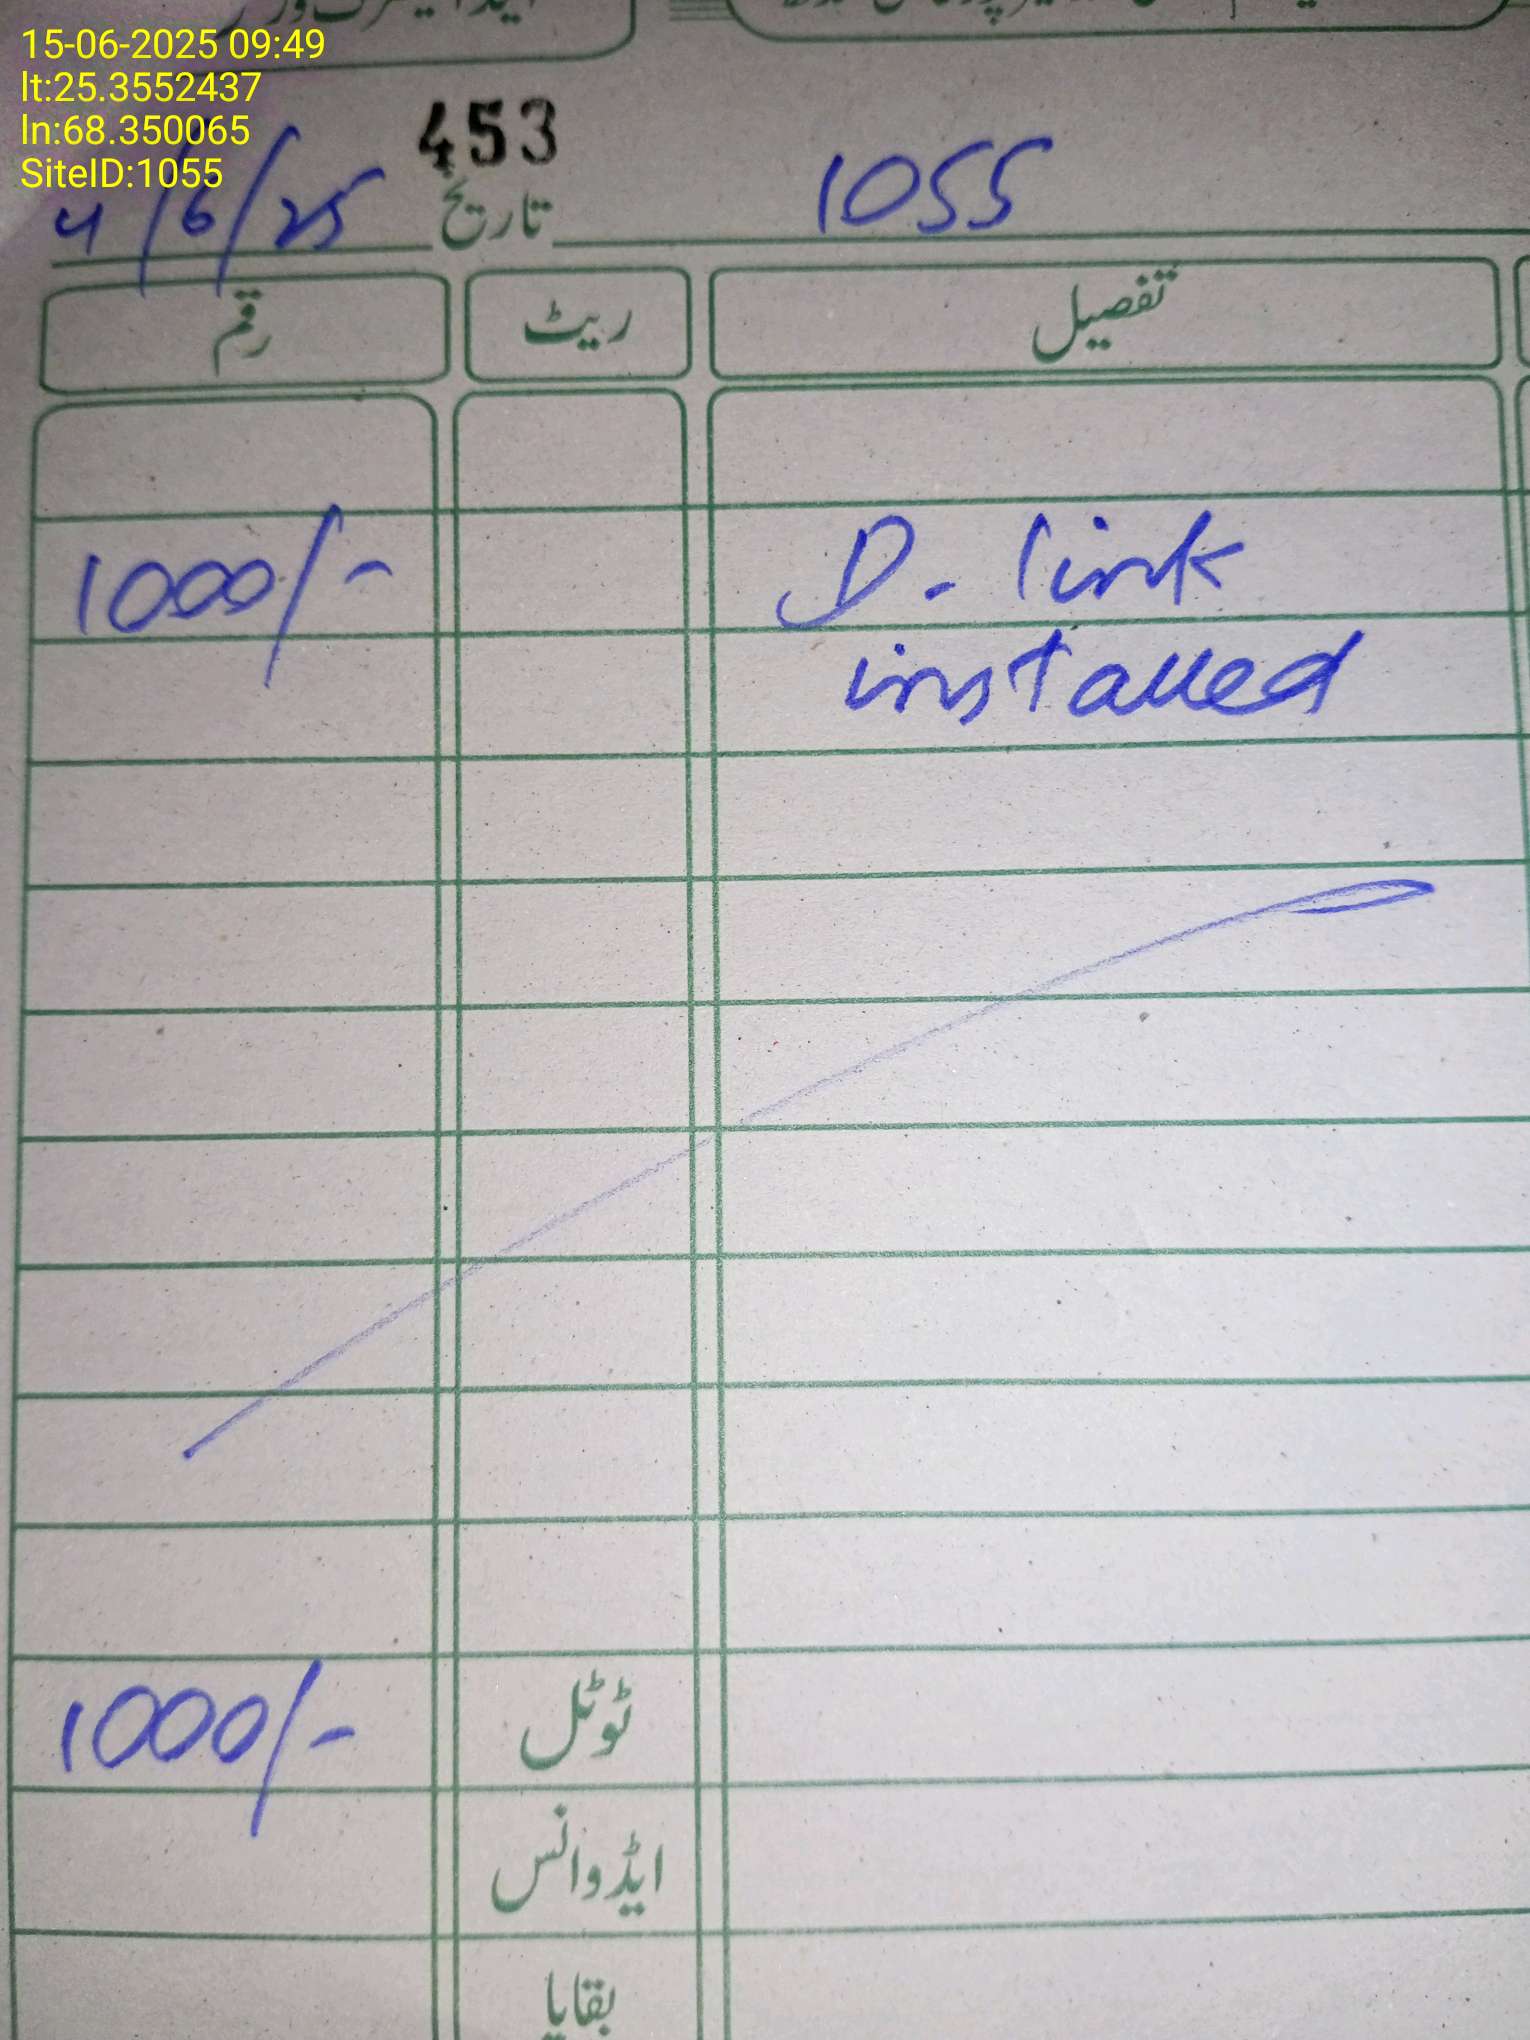 15-06-2025 09:49
lt:25.3552437
ln:68.350065
SiteID:1055
453
1055
تاریخ 4/6/25
تفصیل ریٹ رقم
D. link 1000/-
installed
ٹوٹل 1000/-
ایڈوانس
بقایا